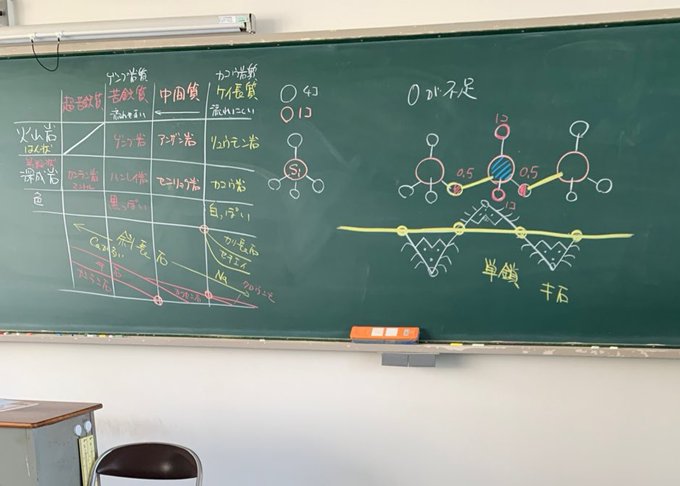 ゲンブ岩質
カコウ岩質
超苦鉄質
苦鉄質
中間質
ケイ長質
流れやすい
流れにくい
火山岩
はんぱ
ゲンブ岩
アンザン岩
リュウモン岩
深成岩
カンラン岩
ハンレイ岩
センリョク岩
カコウ岩
色
黒っぽい
白っぽい
斜長石
Ca
カリ長石
セキエイ
Na
キ石
カンラン石
カクセン石
クロウンモ
4コ
1コ
Si
Oが不足
1コ
0.5
0.5
1コ
単鎖
キ石